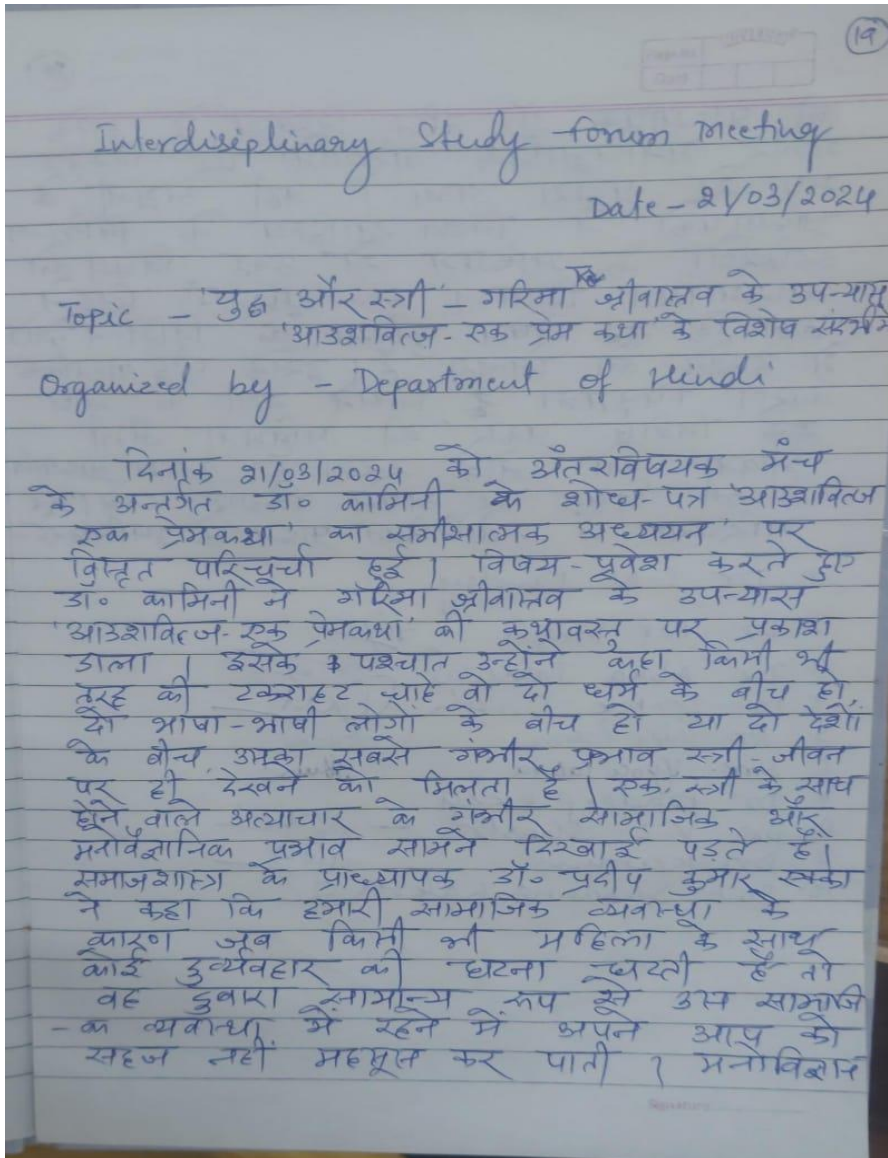 19
Interdisiplinary Study forum Meeting
Date - 21/03/2024
Topic - 'युद्ध और स्त्री' - गरिमा श्रीवास्तव के उपन्यास
'आउशवित्ज - एक प्रेम कथा' के विशेष संदर्भ में
Organized by - Department of Hindi
दिनांक 21/03/2024 को अंतरविषयक मंच
के अन्तर्गत डा० कामिनी के शोध-पत्र 'आउशवित्ज
एक प्रेमकथा' का समीक्षात्मक अध्ययन' पर
विस्तृत परिचर्चा हुई। विषय-प्रवेश करते हुए
डा० कामिनी ने गरिमा श्रीवास्तव के उपन्यास
'आउशवित्ज - एक प्रेमकथा' की कथावस्तु पर प्रकाश
डाला। इसके पश्चात उन्होंने कहा किसी भी
तरह की टकराहट चाहे वो दो धर्म के बीच हो,
दो भाषा-भाषी लोगों के बीच हो या दो देशों
के बीच उसका सबसे गंभीर प्रभाव स्त्री-जीवन
पर ही देखने को मिलता है। एक स्त्री के साथ
होने वाले अत्याचार के गंभीर सामाजिक और
मनोवैज्ञानिक प्रभाव सामने दिखाई पड़ते हैं।
समाजशास्त्र के प्राध्यापक डॉ० प्रदीप कुमार एक्का
ने कहा कि हमारी सामाजिक व्यवस्था के
कारण जब किसी भी महिला के साथ
कोई दुर्व्यवहार की घटना घटती है तो
वह दुबारा सामान्य रूप से उस सामाजि
-क व्यवस्था में रहने में अपने आप को
सहज नहीं महसूस कर पाती। मनोविज्ञान
Signature